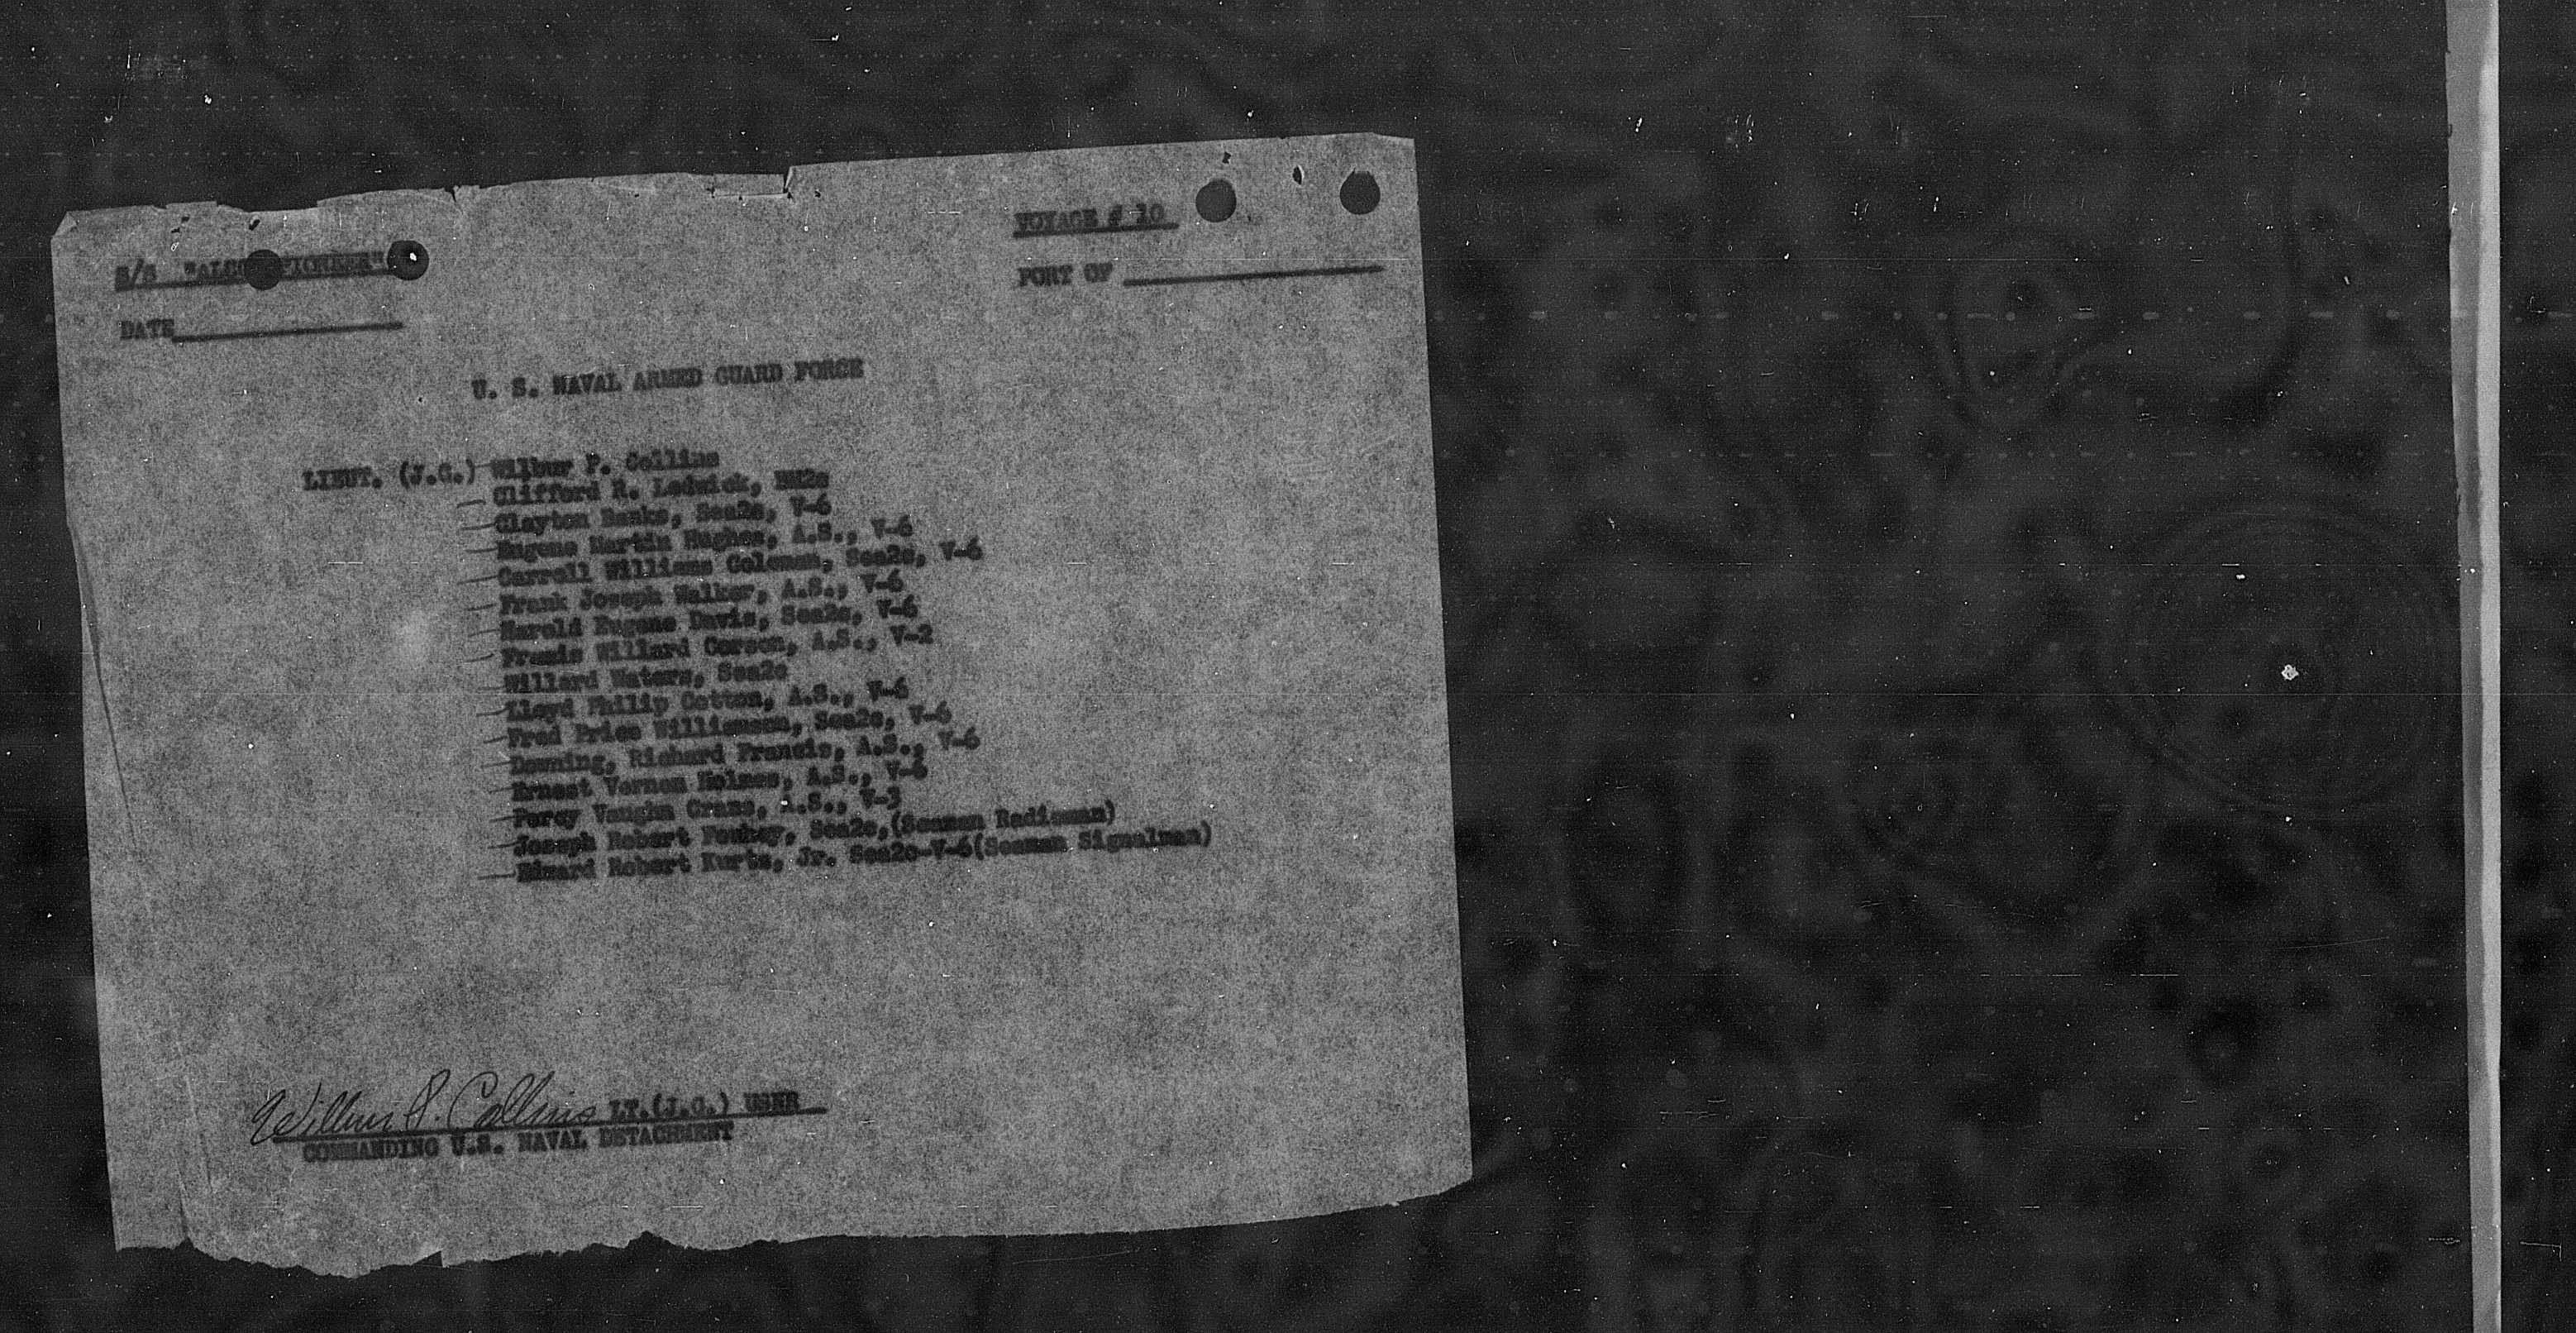 S/S "ALCOA PIONEER"
VOYAGE # 10
PORT OF
DATE
U. S. NAVAL ARMED GUARD FORCE
LIEUT. (J.G.) Wilbur P. Collins
Clifford R. Ledwick, BM2c
Clayton Banks, Sea2c, V-6
Eugene Martin Hughes, A.S., V-6
Carroll Williams Coleman, Sea2c, V-6
Frank Joseph Walker, A.S., V-6
Harold Eugene Davis, Sea2c, V-6
Francis Willard Corson, A.S., V-2
Willard Waters, Sea2c
Lloyd Philip Cotton, A.S., V-6
Fred Price Williamson, Sea2c, V-6
Downing, Richard Francis, A.S., V-6
Ernest Vernon Holmes, A.S., V-6
Percy Vaughn Crans, A.S., V-3
Joseph Robert Sea2c,(Seaman Radioman)
Edward Robert Kurtz, Jr. Sea2c-V-6(Seaman Signalman)
Wilbur P. Collins LT.(J.G.) USNR
COMMANDING U.S. NAVAL DETACHMENT